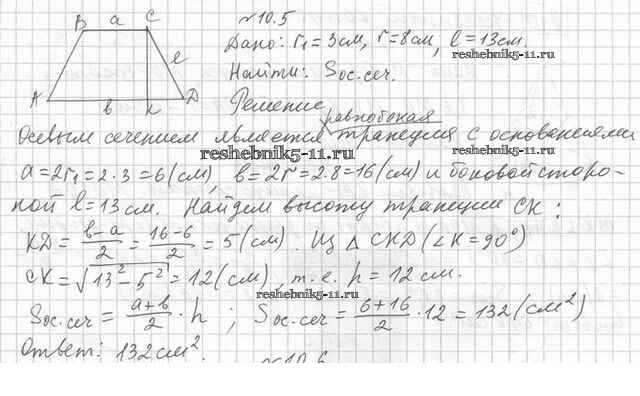 B a C
l
A b K D
№10.5
Дано: r₁=3см, r=8см, l=13см.
reshebnik5-11.ru
Найти: Sос.сеч.
Решение
равнобокая
Осевым сечением является трапеция с основаниями
reshebnik5-11.ru
reshebnik5-11.ru
a=2r₁=2·3=6(см), b=2r=2·8=16(см) и боковой сторо-
ной l=13см. Найдем высоту трапеции CK:
KD = (b-a)/2 = (16-6)/2 = 5(см). Из △CKD (∠K=90°)
CK=√(13²-5²)=12(см), т.е. h=12см.
reshebnik5-11.ru
Sос.сеч = (a+b)/2 · h ; Sос.сеч = (6+16)/2 · 12 = 132(см²)
Ответ: 132см².
№10.6